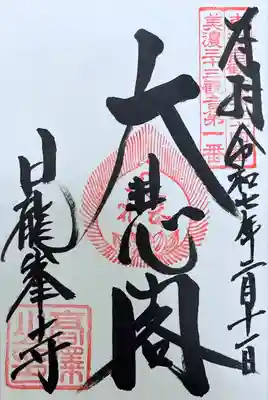 奉拝 令和七年二月十一日
美濃三十三観音第一番
大悲閣
日龍峯寺